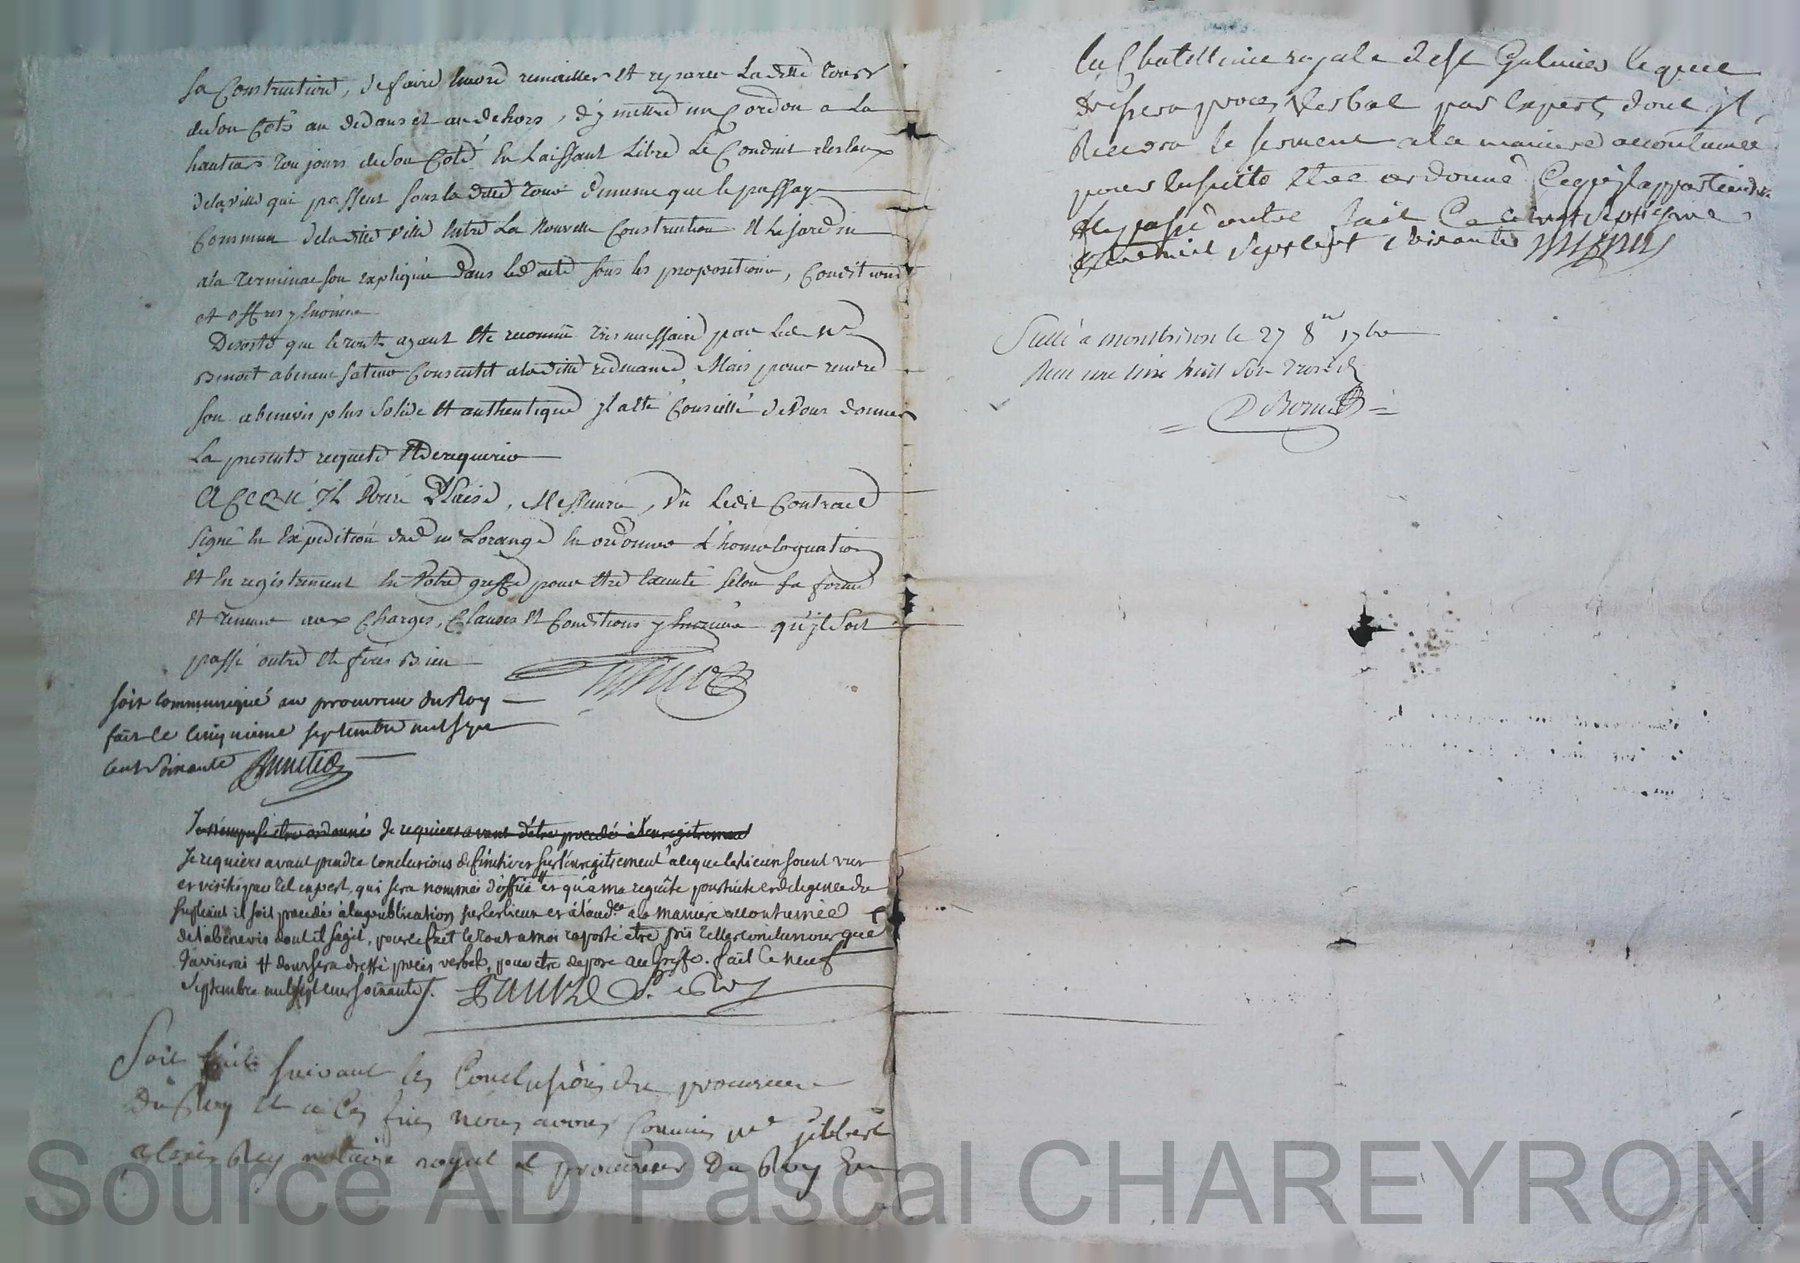 sa Construction, de faire encore remailler et reparer La ditte tour
de son Coté au dedans et au dehors, d'y mettre un Cordon a La
hauteur toujours de son Coté En Laissant Libre Le Conduit des Eaux
de la ville qui passent sous la ditte tour de meme que le passage
Commun de la ditte ville Entre La Nouvelle Construction et Le jardin
a la terminaison expliquée dans led acte sous les propositions, Conditions
et offres y Enoncée
De sorte que le tout ayant été reconnu très necessaire par Led Sr
Benoit a la ditte redevance, Mais pour rendre
son abenevis plus solide et authentique il a été Conseillé de vous donner
La presente requete et de requerir
A CE QU'IL Vous Plaise, Messieurs, Vu Ledit Contract
signé En Expedition dud me Lorange En ordonner L'homologuation
et Enregistrement En Votre greffe pour être Executé selon sa forme
et teneur aux Charges, Clauses et Conditions y Enoncée qu'il soit
passé outre et ferés Bien
soit communiqué au procureur du Roy
fait ce cinquieme septembre mil sept
cent soixante
Je requiers avant d'être procedé à l'enregistrement
Je requiers avant prendre conclusions definitives sur l'enregistrement à ce que les lieux soient vus
et visités par tel expert, qui sera nommé d'office et qu'a ma requête poursuite et diligence du
supliant il soit procedé à la publication sur les lieux et à l'aud.ce a la maniere accoutumée
de l'abenevis dont il s'agit, pour ce fait le tout a moi raporté être pris telles conclusions que
j'aviserai et dont sera dressé procès verbal, pour etre deposé au Greffe. fait ce neuf
Septembre mil sept cent soixante.
Soit fait suivant les Conclusions du procureur
Du Roy et a ces fins nous avons Commis me gilbert
Rey notaire royal et procureur Du Roy En
la Chatellenie royale de St Galmier lequel
dressera procez Verbal par Expert, dont il
Recevra le serment a la maniere accoutumée
pour Ensuite Etre ordonné Ce qu'il appartiendra
Et passé outre fait Ce septembre
mil sept cent soixante
Scellé a montbrison le 27 8bre 1760
Reçu une livre huit Sols
Source AD Pascal CHAREYRON